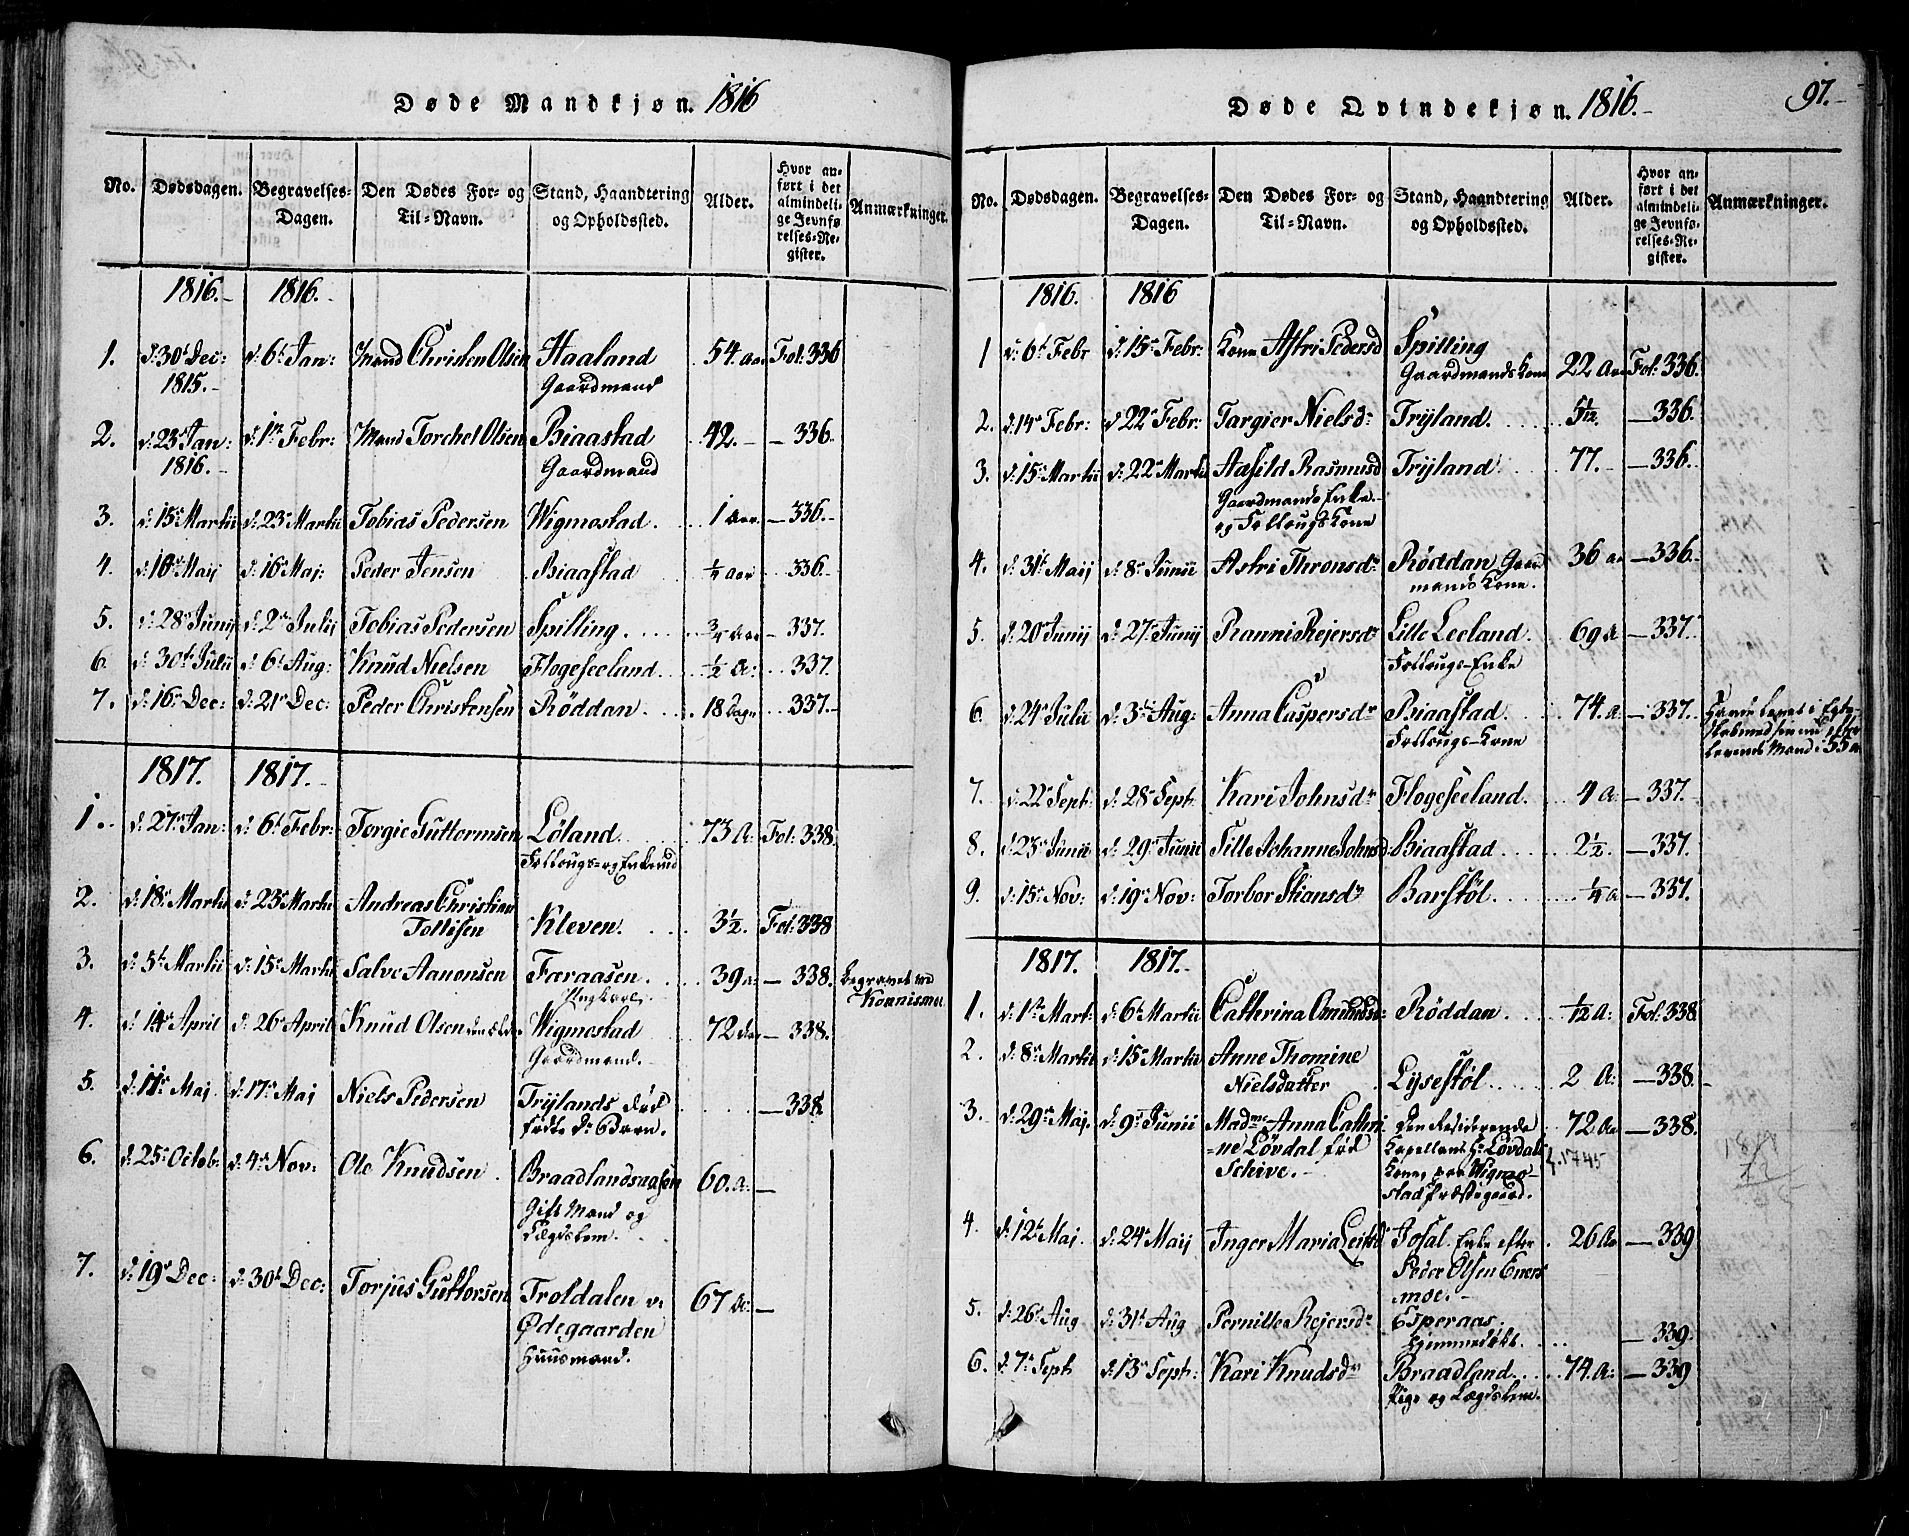 Døde Mandkjøn. 1816
No. Dødsdagen. Begravelses-Dagen. Den Dødes For- og Til-Navn. Stand, Haandtering og Opholdssted. Alder. Hvor anført i det almindelige Jevnførelses-Register. Anmærkninger.
1816. 1816.
1. d: 30t Dec: 1815. d: 6t Jan: Mand Christen Olsen Haaland Gaardmand 54. aar Fol: 336
2. d: 23r Jan: 1816. d: 1te Febr: Mand Torchel Olsen Biaastad Gaardmand 42. 336.
3. d: 15r Martii d: 23r Martii Tobias Pedersen Wigmostad. 1 aar 336.
4. d: 10r Maij d: 16r Maj: Peder Jensen Biaastad ¼ aar 336.
5. d: 28r Junij d: 2r Julij Tobias Pedersen Spilling. ¾ aar 337.
6. d: 30t Julii d: 6t Aug: Knud Nielsen Flogeseeland. ½ a: 337.
7. d: 16r Dec: d: 21r Dec: Peder Christensen Røddan. 18 dage 337.
1817. 1817.
1. d: 27r Jan: d: 6t Febr: Tergie Guttormsen Løland. Follougs- og Enkemd 73 a. Fol: 338.
2. d: 18r Martii d: 23r Martii Andreas Christian Tollisen Kleven. 3½. Fol: 338
3. d: 5t Martii d: 15r Martii Salve Aanonsen Faraasen. Ungkarl. 39 a: 338. begravet ved Konnismoe
4. d: 14r April d: 26r April Knud Olsen den ældre Wigmostad Gaardmand. 72 338.
5. d: 11r Maj d: 17r Maj Niels Pedersen Trylands død fødte Dr Barn. 338.
6. d: 25r Octob: d: 4r Nov: Ole Knudsen. Braadlandsaasen Gift Mand og Lægdslem. 60. a:
7. d: 19r Dec: d: 30t Dec: Torjus Guttorsen Troldalen v. Ødegaarden Huusmand. 67 a:
Døde Qvindekjøn. 1816.
97.
No. Dødsdagen. Begravelses-Dagen. Den Dødes For- og Til-Navn. Stand, Haandtering og Opholdssted. Alder. Hvor anført i det almindelige Jevnførelses-Register. Anmærkninger.
1816. 1816
1 d: 6t Febr d: 15r Febr: Kone Astri Pedersd Spilling Gaardmands Kone 22 aar Fol: 336.
2. d: 14r Febr: d 22r Febr: Targier Nielsdr Tryland. 5/12. 336.
3. d: 15r Martii d: 22r Martii Aasild Rasmusd Gaardmands Enke og Follougs Kone Tryland. 77. 336.
4. d: 31t Maij d: 8r Junii Astri Thronsdr Røddan Gaardmands Kone. 36 a 336.
5. d: 20r Junij d: 27r Junij Ranni Rejersdr Lille Leeland. Follougs-Enke 69 a 337.
6. d: 24r Julii d: 3t Aug: Anna Caspersdr Biaastad. Follougs-Kone 74. a: 337. Havde levet i Egteskab med sin nu efterlevende Mand i 55 a
7. d: 22r Sept: d: 28r Sept: Kari Johnsdr Flogeseeland. 4 a: 337.
8. d: 23r Junii d: 29r Junii Sille Johanne Johnsd: Biaastad 2½. 337.
9. d: 15r Nov: d: 19r Nov: Torbor Stiansdr Barstøl ¼ a 337.
1817. 1817.
1. d: 1te Mart: d: 6t Martii Cathrina Omundsd: Røddan. ½ a: Fol: 338
2. d: 8r Martii d: 15r Martii Anne Thomine Nielsdatter Lysestøl. 2 a: 338.
3. d: 29r Maj. d: 9r Junii Madme Anna Cathrine Løvdal fød Schive. den Residerende Kapellans Hr Løvdals Kone paa Wigmostad Præstegaard. 72 aa 338. f. 1745
4. d: 12t Maj. d: 24r Maij Inger Maria Josal. Enke efter Peder Olsen Eversmoe. 26 aa 339
5. d: 26r Aug d: 31t Aug Pernille Rejersdr Esperaas. hjemmedøbt. 339.
6. d: 7r Sept d: 13r Sept: Kari Knudsdr Braadland. Pige og Lægdslem. 74. a: 339